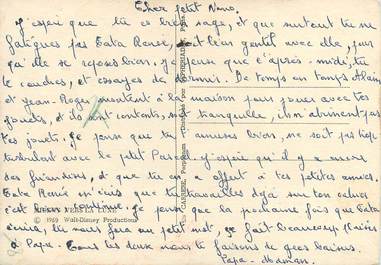 Cher petit Nono.
J'espère que tu es bien sage, et que surtout tu ne
fatigues pas Tata Renée, sois bien gentil avec elle, pour
qu'elle se repose bien, je veux que l'après-midi, tu
te couches, et essayes de dormir. De temps en temps Alain
et Jean-Roger montent à la maison pour jouer avec tes
jouets, et ils sont contents, sois tranquille, ils n'abiment pas
tes jouets. Je pense que tu t'amuses bien, ne sois pas trop
turbulent avec le petit Pascal, j'espère qu'il y a encore
des friandises, et que tu en offert à tes petites amies.
Tata Renée m'écris que tu travailles déjà sur ton cahier
c'est bien continue. Je pense que la prochaine fois que Tata
écrira, tu nous fera un petit mot, ça fait beaucoup plaisir
à Papa. Tous les deux nous te faisons de gros baisers.
Papa - Maman.
MICKEY VERS LA LUNE
© 1969 Walt-Disney Productions